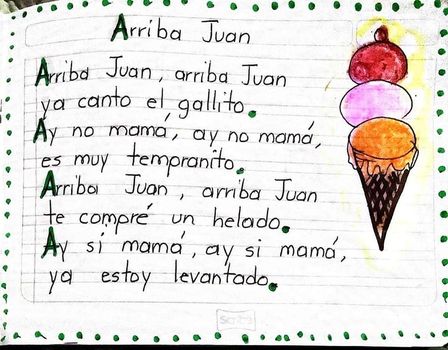 Arriba Juan
Arriba Juan, arriba Juan
ya canto el gallito.
Ay no mamá, ay no mamá,
es muy tempranito.
Arriba Juan, arriba Juan
te compré un helado.
Ay si mamá, ay si mamá,
ya estoy levantado.